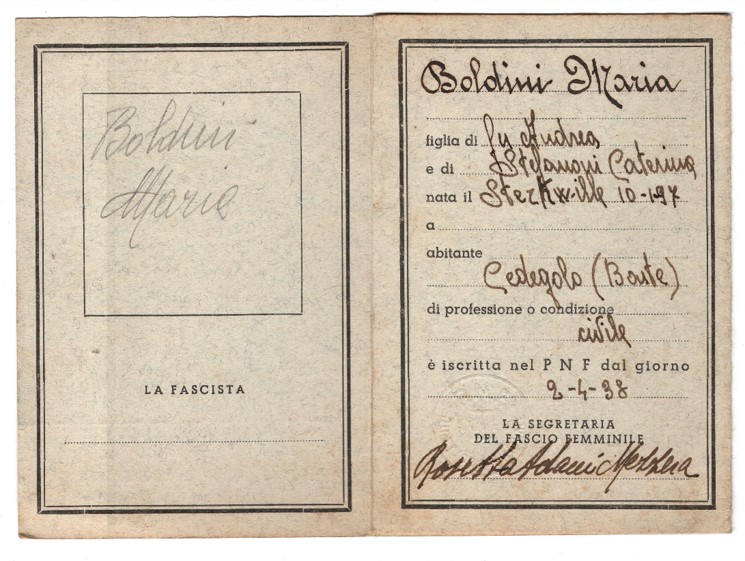 Boldini
Maria
LA FASCISTA
Boldini Maria
figlia di fu Andrea
e di Stefanoni Caterina
nata il 10-1-97
a
abitante
Cedegolo (Bonte)
di professione o condizione
civile
è iscritta nel P N F dal giorno
2-4-38
LA SEGRETARIA
DEL FASCIO FEMMINILE
Rosetta Adami